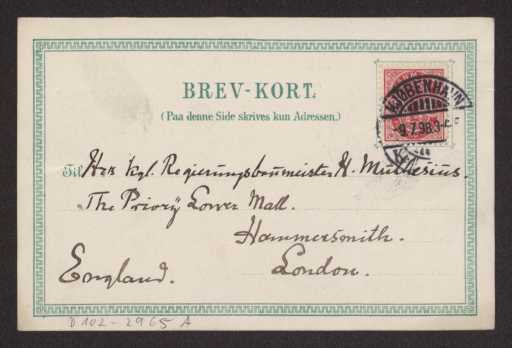 BREV-KORT.
(Paa denne Side skrives kun Adressen.)
KJØBENHAVN
-9.7.98.3-4 E
K.
Til Herr kgl. Regierungsbaumeister H. Muthesius.
The Priory Lower Mall.
Hammersmith.
England. London.
D 102-2965 A